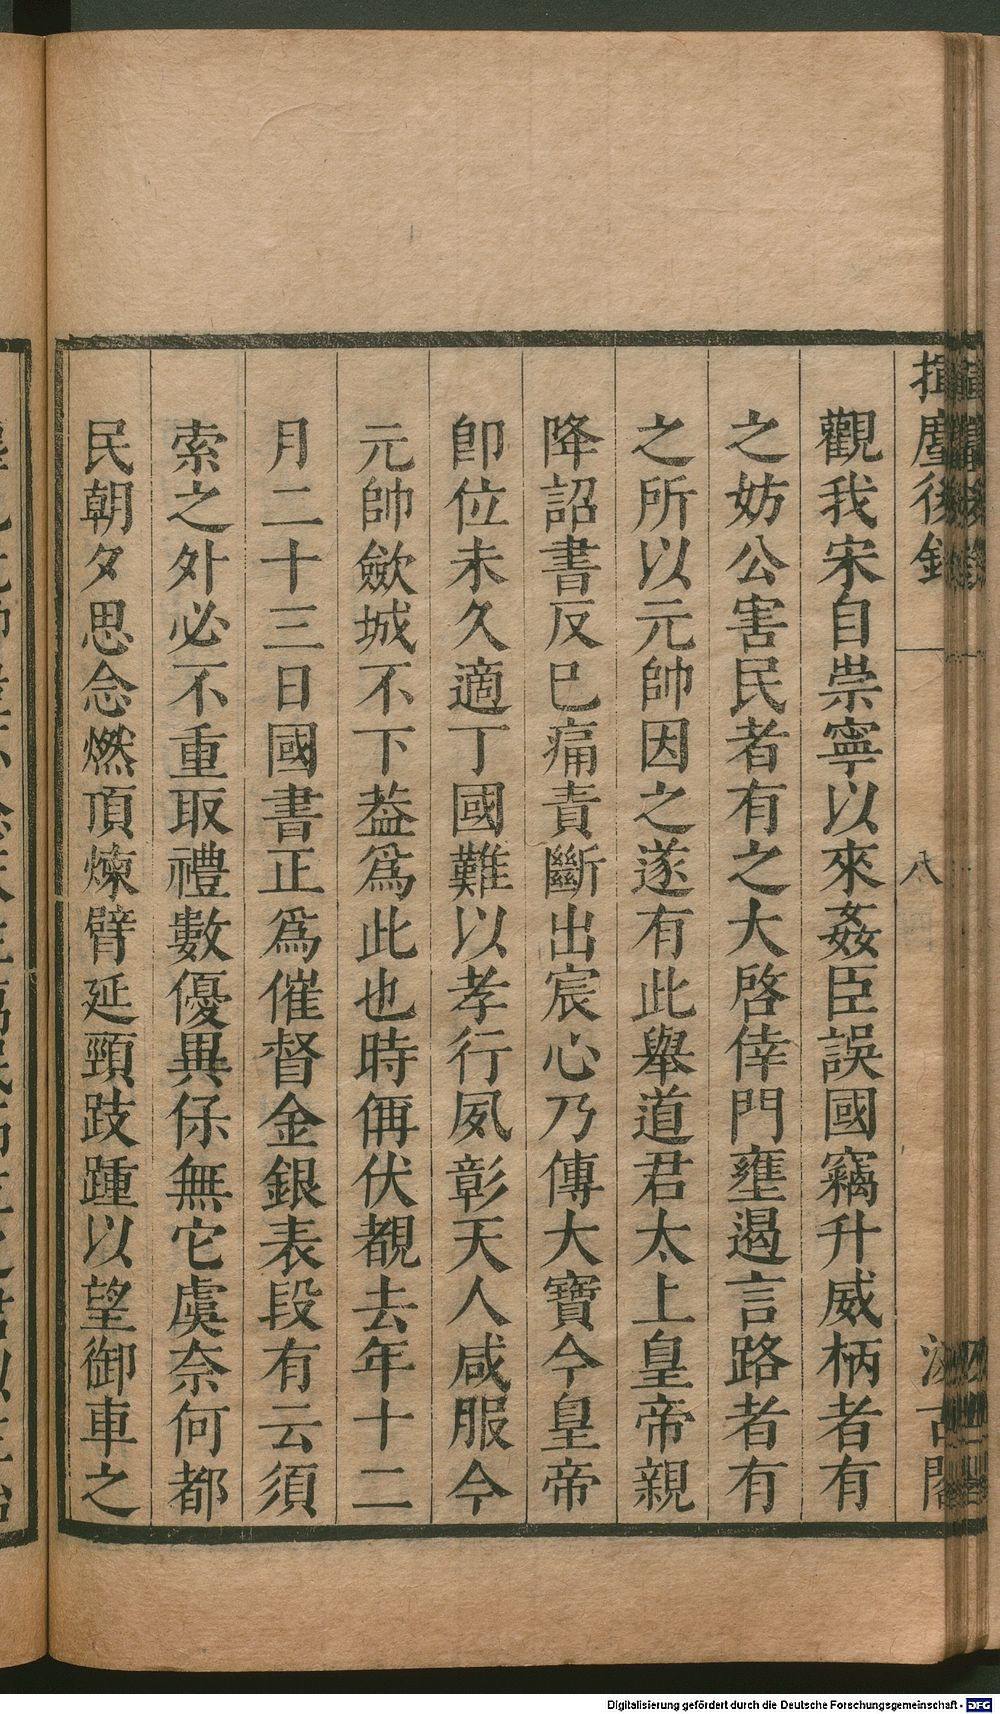 揮麈後錄
八
汲古閣
觀我宋自崇寧以來姦臣誤國竊升威柄者有
之妨公害民者有之大啓倖門壅遏言路者有
之所以元帥因之遂有此舉道君太上皇帝親
降詔書反巳痛責斷出宸心乃傳大寶今皇帝
卽位未久適丁國難以孝行夙彰天人咸服今
元帥歛城不下葢爲此也時偁伏覩去年十二
月二十三日國書正爲催督金銀表段有云須
索之外必不重取禮數優異保無它虞奈何都
民朝夕思念燃頂煉臂延頸跂踵以望御車之
Digitalisierung gefördert durch die Deutsche Forschungsgemeinschaft - DFG